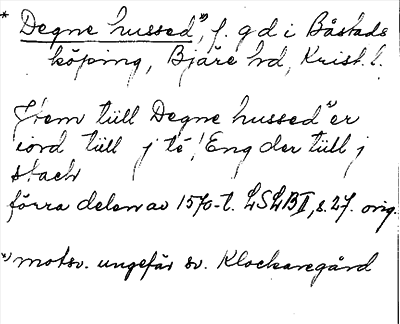 * Degne hussed *), f. gd i Båstads
köping, Bjäre hd, Krist. l.
Jtem tüll Degne hussed" er
iord tüll j té! Eng der tüll j
stach
förra delen av 1570-t. LSLB II, s. 27. orig.
*) motsv. ungefär sv. Klockaregård